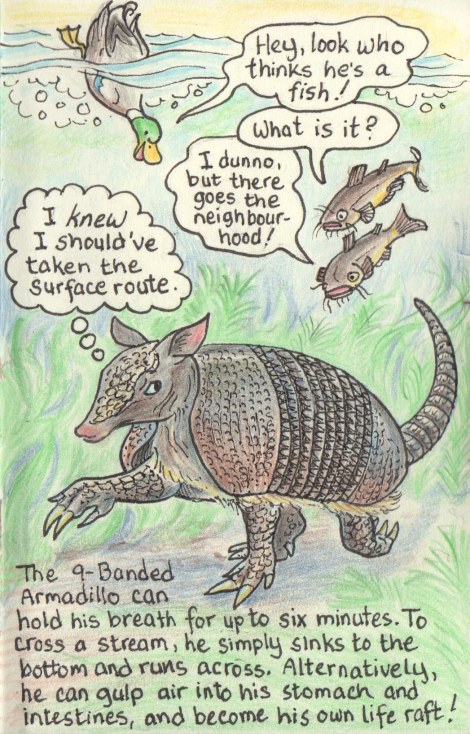 Hey, look who
thinks he's a
fish!
What is it?
I dunno,
but there
goes the
neighbour-
hood!
I knew
I should've
taken the
surface route.
The 9-Banded
Armadillo can
hold his breath for up to six minutes. To
cross a stream, he simply sinks to the
bottom and runs across. Alternatively,
he can gulp air into his stomach and
intestines, and become his own life raft!